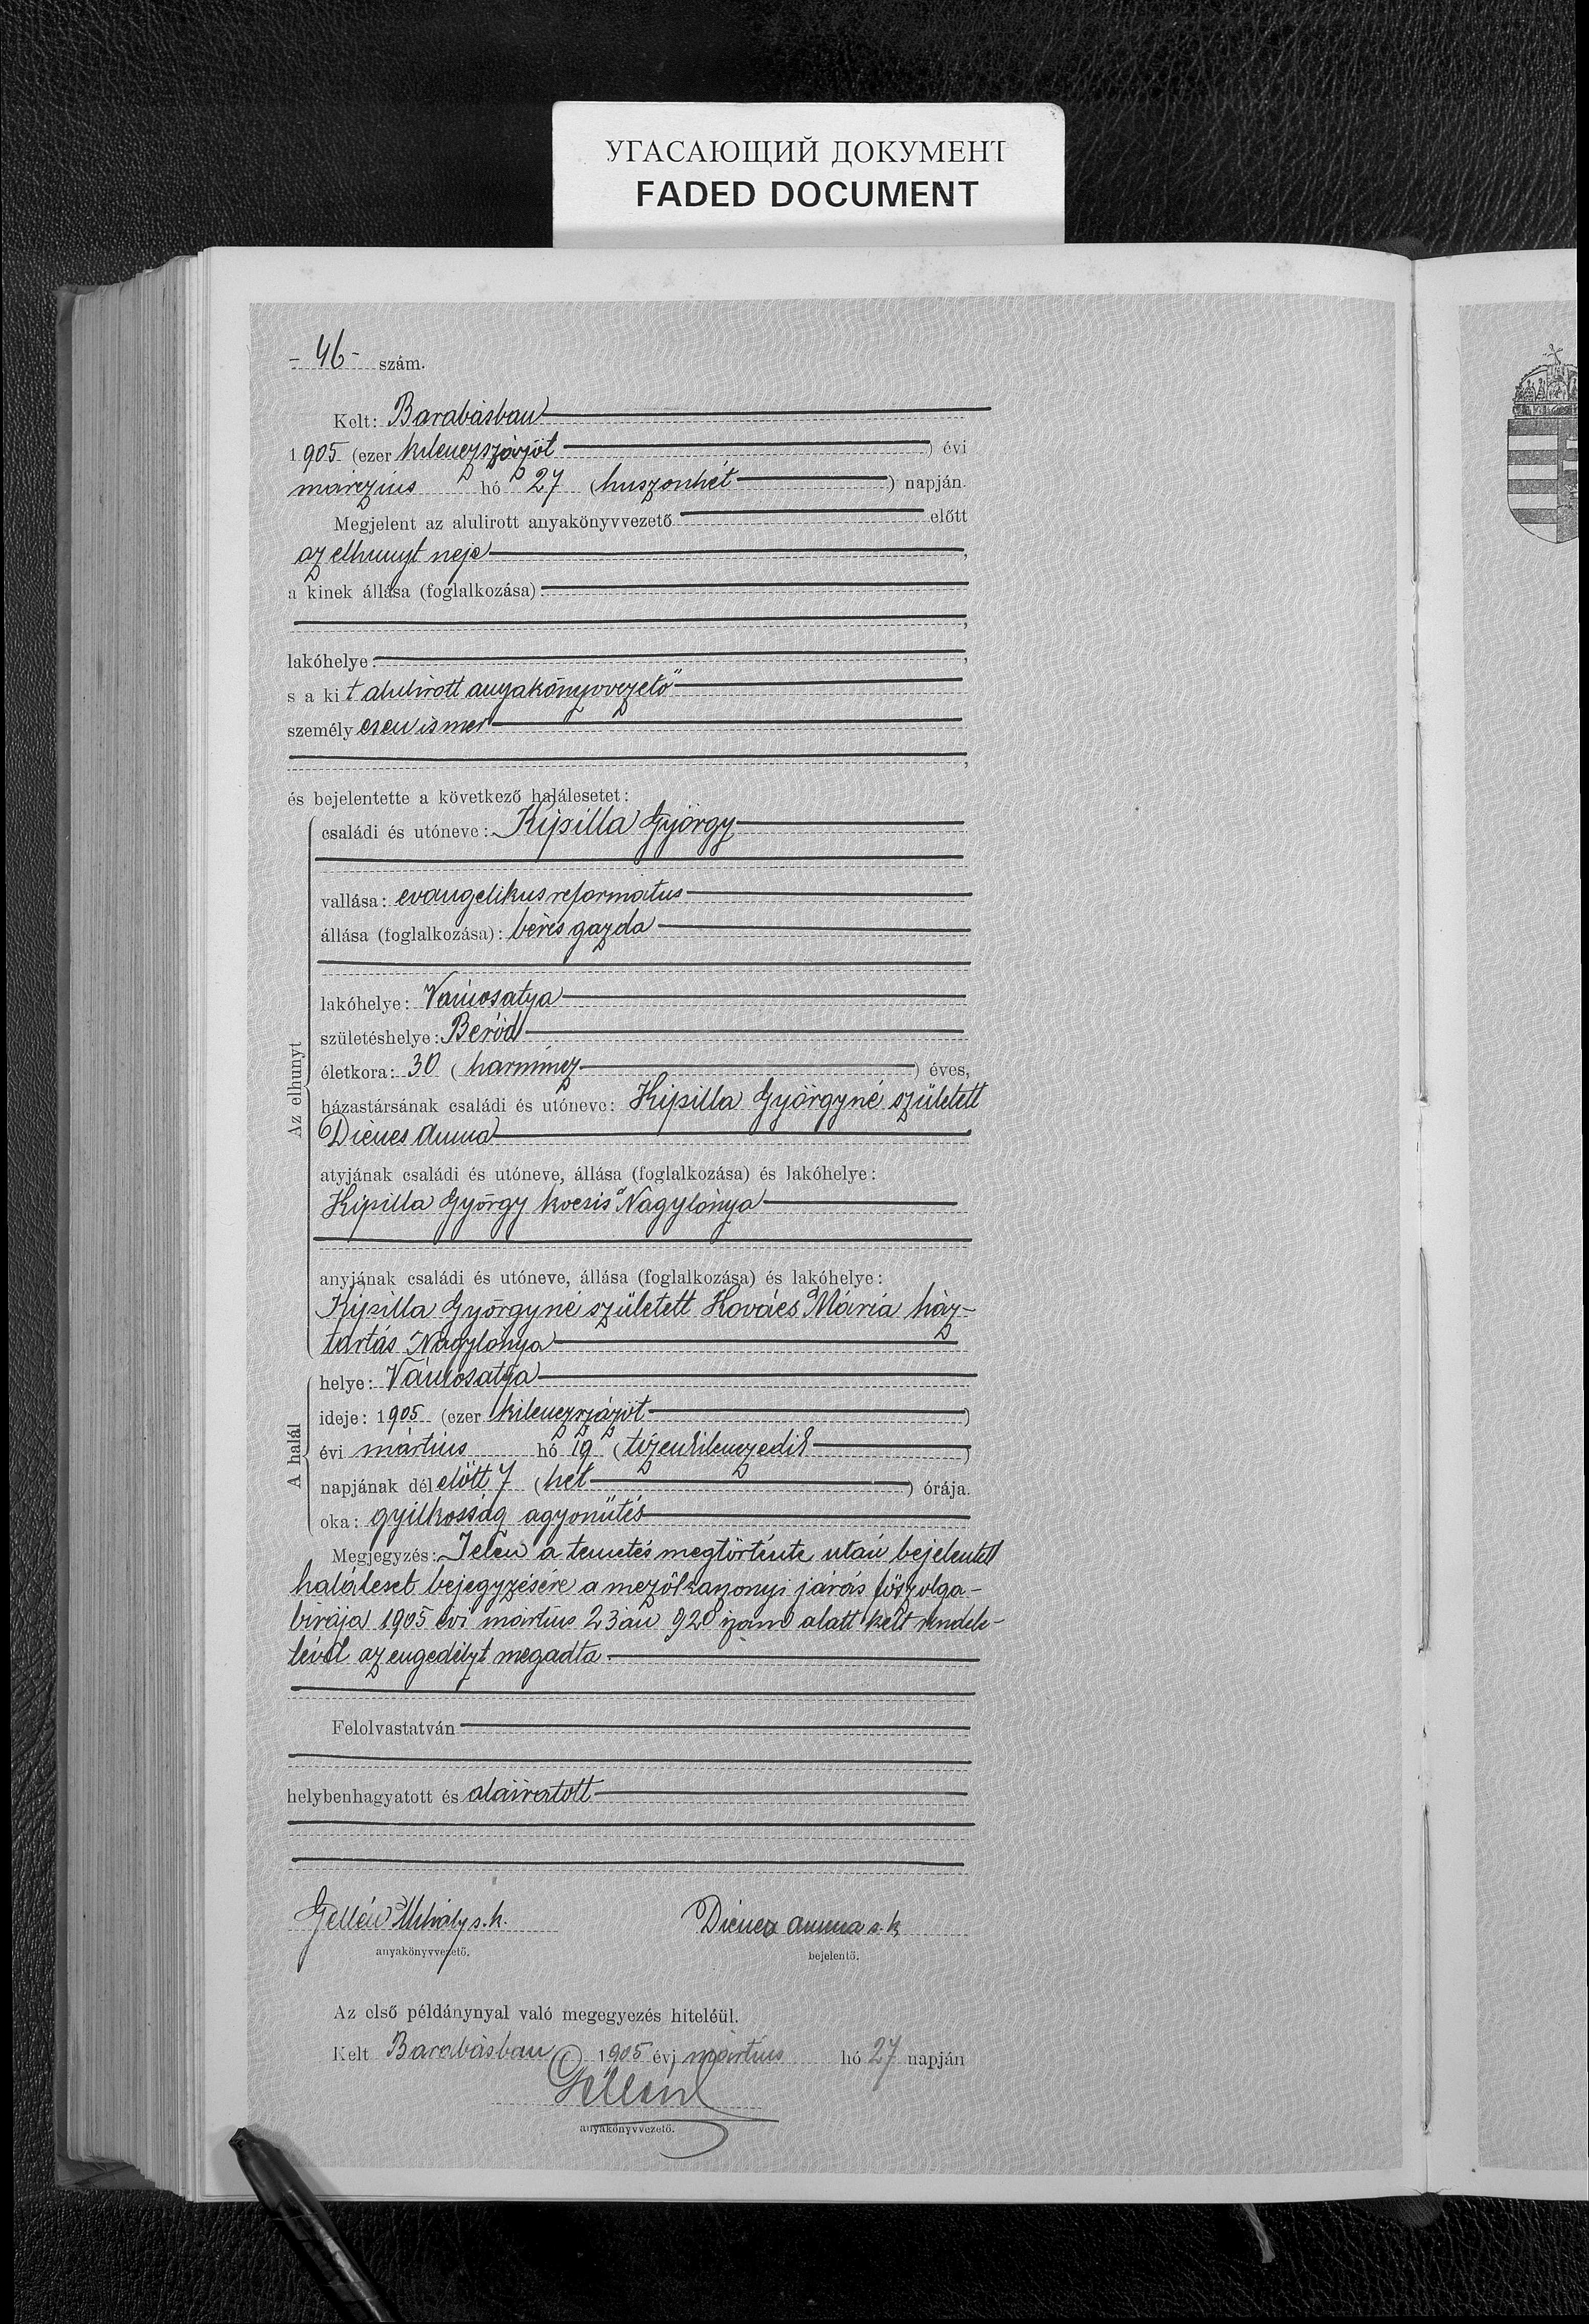 УГАСАЮЩИЙ ДОКУМЕНТ
FADED DOCUMENT
- 46 - szám.
Kelt: Barabásban
1905 (ezer kilenczszázöt) évi
márczius hó 27 (huszonhét) napján.
Megjelent az alulirott anyakönyvvezető előtt
az elhunyt neje,
a kinek állása (foglalkozása):
,
lakóhelye:,
s a kit alulirott anyakönyvvezető
személyesen ismer
,
és bejelentette a következő halálesetet:
Az elhunyt
családi és utóneve: Kipsilla György
vallása: evangelikus reformatus
állása (foglalkozása): béres gazda
lakóhelye: Vámosatya
születéshelye: Beród
életkora: 30 (harmincz) éves,
házastársának családi és utóneve: Kipsilla Györgyné született
Dienes Anna
atyjának családi és utóneve, állása (foglalkozása) és lakóhelye:
Kipsilla György kocsis Nagylónya
anyjának családi és utóneve, állása (foglalkozása) és lakóhelye:
Kipsilla Györgyné született Kovács Mária ház-
tartás Nagylónya
A halál
helye: Vámosatya
ideje: 1905 (ezer kilenczszázöt)
évi mártius hó 19 (tizenkilenczedik)
napjának dél előtt 7 (hét) órája.
oka: gyilkosság agyonütés
Megjegyzés: Jelen a temetés megtörténte után bejelentett
haláleset bejegyzésére a mezőkaszonyi járás főszolga-
birája 1905 évi mártius 23án 920 szám alatt kelt rendele-
tével az engedélyt megadta.
Felolvastatván
helybenhagyatott és aláiratott
Gellén Mihály s. k.
anyakönyvvezető.
Dienes Anna s. k
bejelentő.
Az első példánynyal való megegyezés hiteléül.
Kelt Barabásban 1905 évi mártius hó 27 napján
Gellén
anyakönyvvezető.